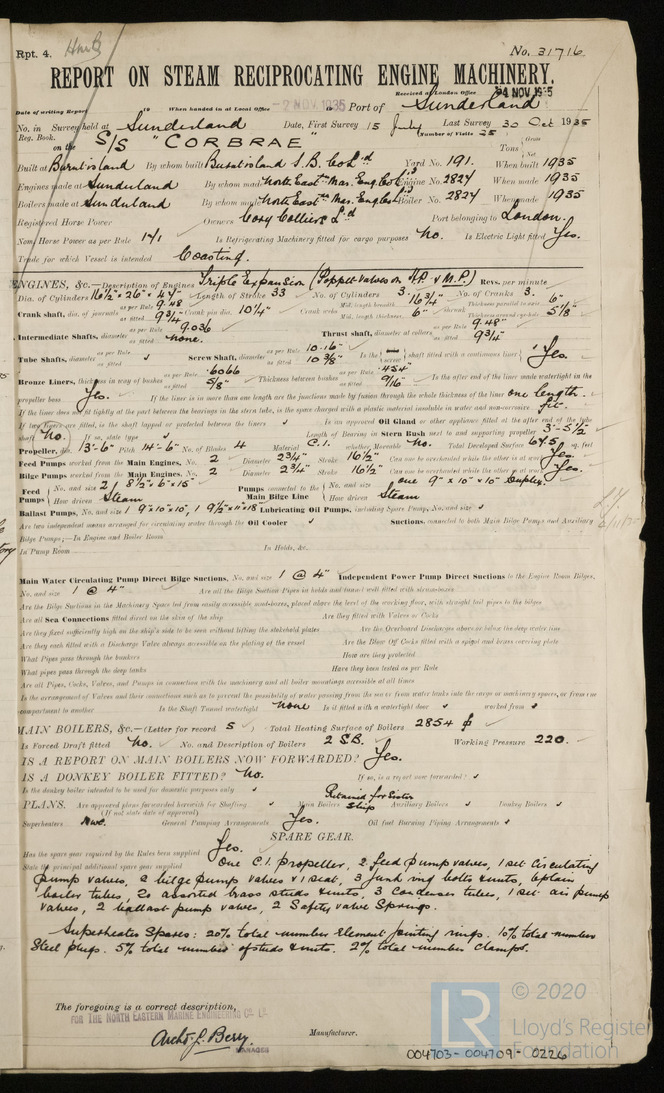 Rpt. 4.
No. 31716
REPORT ON STEAM RECIPROCATING ENGINE MACHINERY.
Received at London Office 4 NOV 1935
Date of writing Report When handed in at Local Office -2 NOV. 1935 Port of Sunderland
No. in Survey held at Sunderland Date, First Survey 15 July Last Survey 30 Oct 1935
Reg. Book. Number of Visits 25
on the S/S "CORBRAE" Tons Gross Net
Built at Burntisland By whom built Burntisland S.B. Co Ld Yard No. 191. When built 1935
Engines made at Sunderland By whom made North Eastn Mar. Eng. Co Ld Engine No. 2824 When made 1935
Boilers made at Sunderland By whom made North Eastn Mar. Eng Co Ld Boiler No. 2824 When made 1935
Registered Horse Power Owners Cory Colliers Ld Port belonging to London.
Nom. Horse Power as per Rule 141 Is Refrigerating Machinery fitted for cargo purposes No. Is Electric Light fitted Yes.
Trade for which Vessel is intended Coasting.
ENGINES, &c.—Description of Engines Triple Expansion (Poppet valves on H.P. & M.P.) Revs. per minute
Dia. of Cylinders 16½" × 26" × 47" Length of Stroke 33 No. of Cylinders 3. No. of Cranks 3.
Crank shaft, dia. of journals as per Rule 9.48 as fitted 9¾" Crank pin dia. 10¼" Crank webs Mid. length breadth 16¾" Mid. length thickness 6" Thickness parallel to axis 6" Thickness around eyehole 5⅛"
Intermediate Shafts, diameter as per Rule 9.036 as fitted none. Thrust shaft, diameter at collars as per Rule 9.48" as fitted 9¾"
Tube Shafts, diameter as per Rule as fitted Screw Shaft, diameter as per Rule 10.16" as fitted 10⅜" Is the screw shaft fitted with a continuous liner Yes.
Bronze Liners, thickness in way of bushes as per Rule .6066 as fitted ⅝" Thickness between bushes as per Rule .454" as fitted 9/16" Is the after end of the liner made watertight in the
propeller boss Yes. If the liner is in more than one length are the junctions made by fusion through the whole thickness of the liner one length.
If the liner does not fit tightly at the part between the bearings in the stern tube, is the space charged with a plastic material insoluble in water and non-corrosive fit.
If two liners are fitted, is the shaft lapped or protected between the liners Is an approved Oil Gland or other appliance fitted at the after end of the tube
shaft No. If so, state type Length of Bearing in Stern Bush next to and supporting propeller 3'-5½"
Propeller, dia. 13'-6" Pitch 14'-6" No. of Blades 4 Material C.I. whether Moveable No. Total Developed Surface 67.5 sq. feet
Feed Pumps worked from the Main Engines, No. 2 Diameter 2¾" Stroke 16½" Can one be overhauled while the other is at work Yes.
Bilge Pumps worked from the Main Engines, No. 2 Diameter 2¾" Stroke 16½" Can one be overhauled while the other is at work Yes.
Feed Pumps No. and size 2/ 8½" × 6" × 15" How driven Steam Pumps connected to the Main Bilge Line No. and size one 9" × 10" × 10" Duplex. How driven Steam
Ballast Pumps, No. and size 1 9" × 10" × 10", Lubricating Oil Pumps, including Spare Pump, No. and size
Are two independent means arranged for circulating water through the Oil Cooler Suctions, connected to both Main Bilge Pumps and Auxiliary
Bilge Pumps;—In Engine and Boiler Room
In Pump Room In Holds, &c.
Main Water Circulating Pump Direct Bilge Suctions, No. and size 1 @ 4" Independent Power Pump Direct Suctions to the Engine Room Bilges,
No. and size 1 @ 4" Are all the Bilge Suction Pipes in holds and tunnel well fitted with strum-boxes
Are the Bilge Suctions in the Machinery Space led from easily accessible mud-boxes, placed above the level of the working floor, with straight tail pipes to the bilges
Are all Sea Connections fitted direct on the skin of the ship Are they fitted with Valves or Cocks
Are they fixed sufficiently high on the ship's side to be seen without lifting the stokehold plates Are the Overboard Discharges above or below the deep water line
Are they each fitted with a Discharge Valve always accessible on the plating of the vessel Are the Blow Off Cocks fitted with a spigot and brass covering plate
What Pipes pass through the bunkers How are they protected
What pipes pass through the deep tanks Have they been tested as per Rule
Are all Pipes, Cocks, Valves, and Pumps in connection with the machinery and all boiler mountings accessible at all times
Is the arrangement of Valves and their connections such as to prevent the possibility of water passing from the sea or from water tanks into the cargo or machinery spaces, or from one
compartment to another Is the Shaft Tunnel watertight none Is it fitted with a watertight door worked from
MAIN BOILERS, &c.—(Letter for record S) Total Heating Surface of Boilers 2854
Is Forced Draft fitted No. No. and Description of Boilers 2 S.B. Working Pressure 220.
IS A REPORT ON MAIN BOILERS NOW FORWARDED? Yes.
IS A DONKEY BOILER FITTED? No. If so, is a report now forwarded?
Is the donkey boiler intended to be used for domestic purposes only
PLANS. Are approved plans forwarded herewith for Shafting Main Boilers Retained for Sister Ship Auxiliary Boilers Donkey Boilers
(If not state date of approval)
Superheaters General Pumping Arrangements Yes. Oil fuel Burning Piping Arrangements
SPARE GEAR.
Has the spare gear required by the Rules been supplied Yes.
State the principal additional spare gear supplied One C.I. propeller, 2 feed pump valves, 1 set circulating
pump valves, 2 bilge pump valves & 1 seat, 3 junk ring bolts & nuts, 6 plain
boiler tubes, 20 assorted brass studs & nuts, 3 condenser tubes, 1 set air pump
valves, 2 ballast pump valves, 2 Safety valve Springs.
Superheater Spares: 20% total number Element jointing rings. 10% total number
Steel plugs. 5% total number of studs & nuts. 2% total number clamps.
The foregoing is a correct description,
FOR THE NORTH EASTERN MARINE ENGINEERING Co. Ld.
Manufacturer.
MANAGER
004703-004709-0226
© 2020
LR
Lloyd's Register
Foundation